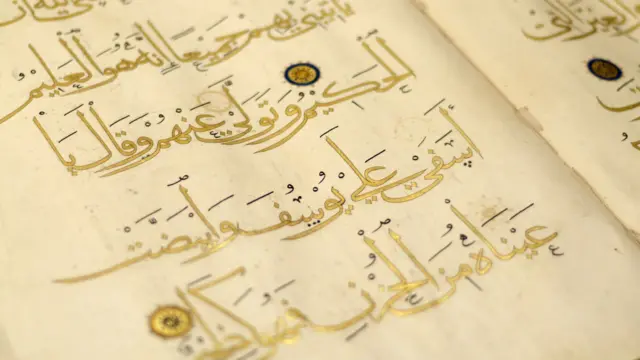 يأتيني بهم جميعا إنه هو العليم
الحكيم وتولى عنهم وقال يا
أسفى على يوسف وابيضت
عيناه من الحزن فهو كظيم